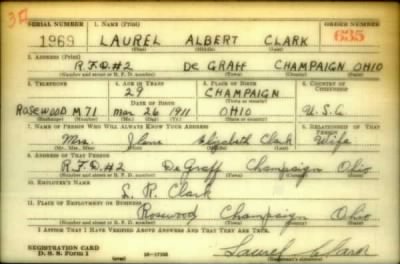 SERIAL NUMBER 1. NAME (Print) ORDER NUMBER
1969 LAUREL ALBERT CLARK 635
(First) (Middle) (Last)
2. ADDRESS (Print)
R.F.D.#2 DE GRAFF CHAMPAIGN OHIO
(Number and street or R. F. D. number) (Town) (County) (State)
3. TELEPHONE 4. AGE IN YEARS 5. PLACE OF BIRTH 6. COUNTRY OF CITIZENSHIP
29 CHAMPAIGN
DATE OF BIRTH (Town or county)
ROSEWOOD M71 Mar 26 1911 OHIO U.S.A
(Exchange) (Number) (Mo.) (Day) (Yr.) (State or country)
7. NAME OF PERSON WHO WILL ALWAYS KNOW YOUR ADDRESS 8. RELATIONSHIP OF THAT PERSON
Mrs. Elizabeth Clark Wife
(Mr., Mrs., Miss) (First) (Middle) (Last)
9. ADDRESS OF THAT PERSON
R.F.D.#2 DeGraff Champaign Ohio
(Number and street or R. F. D. number) (Town) (County) (State)
10. EMPLOYER'S NAME
S. R. Clark
11. PLACE OF EMPLOYMENT OR BUSINESS
Rosewood Champaign Ohio
(Number and street or R. F. D. number) (Town) (County) (State)
I AFFIRM THAT I HAVE VERIFIED ABOVE ANSWERS AND THAT THEY ARE TRUE.
REGISTRATION CARD
D. S. S. Form 1 16-17105 Laurel Clark
(Registrant's signature)